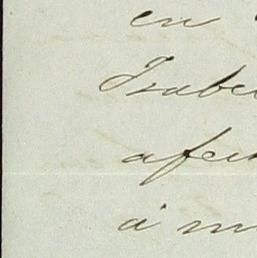 en
Isabe
afec
á m